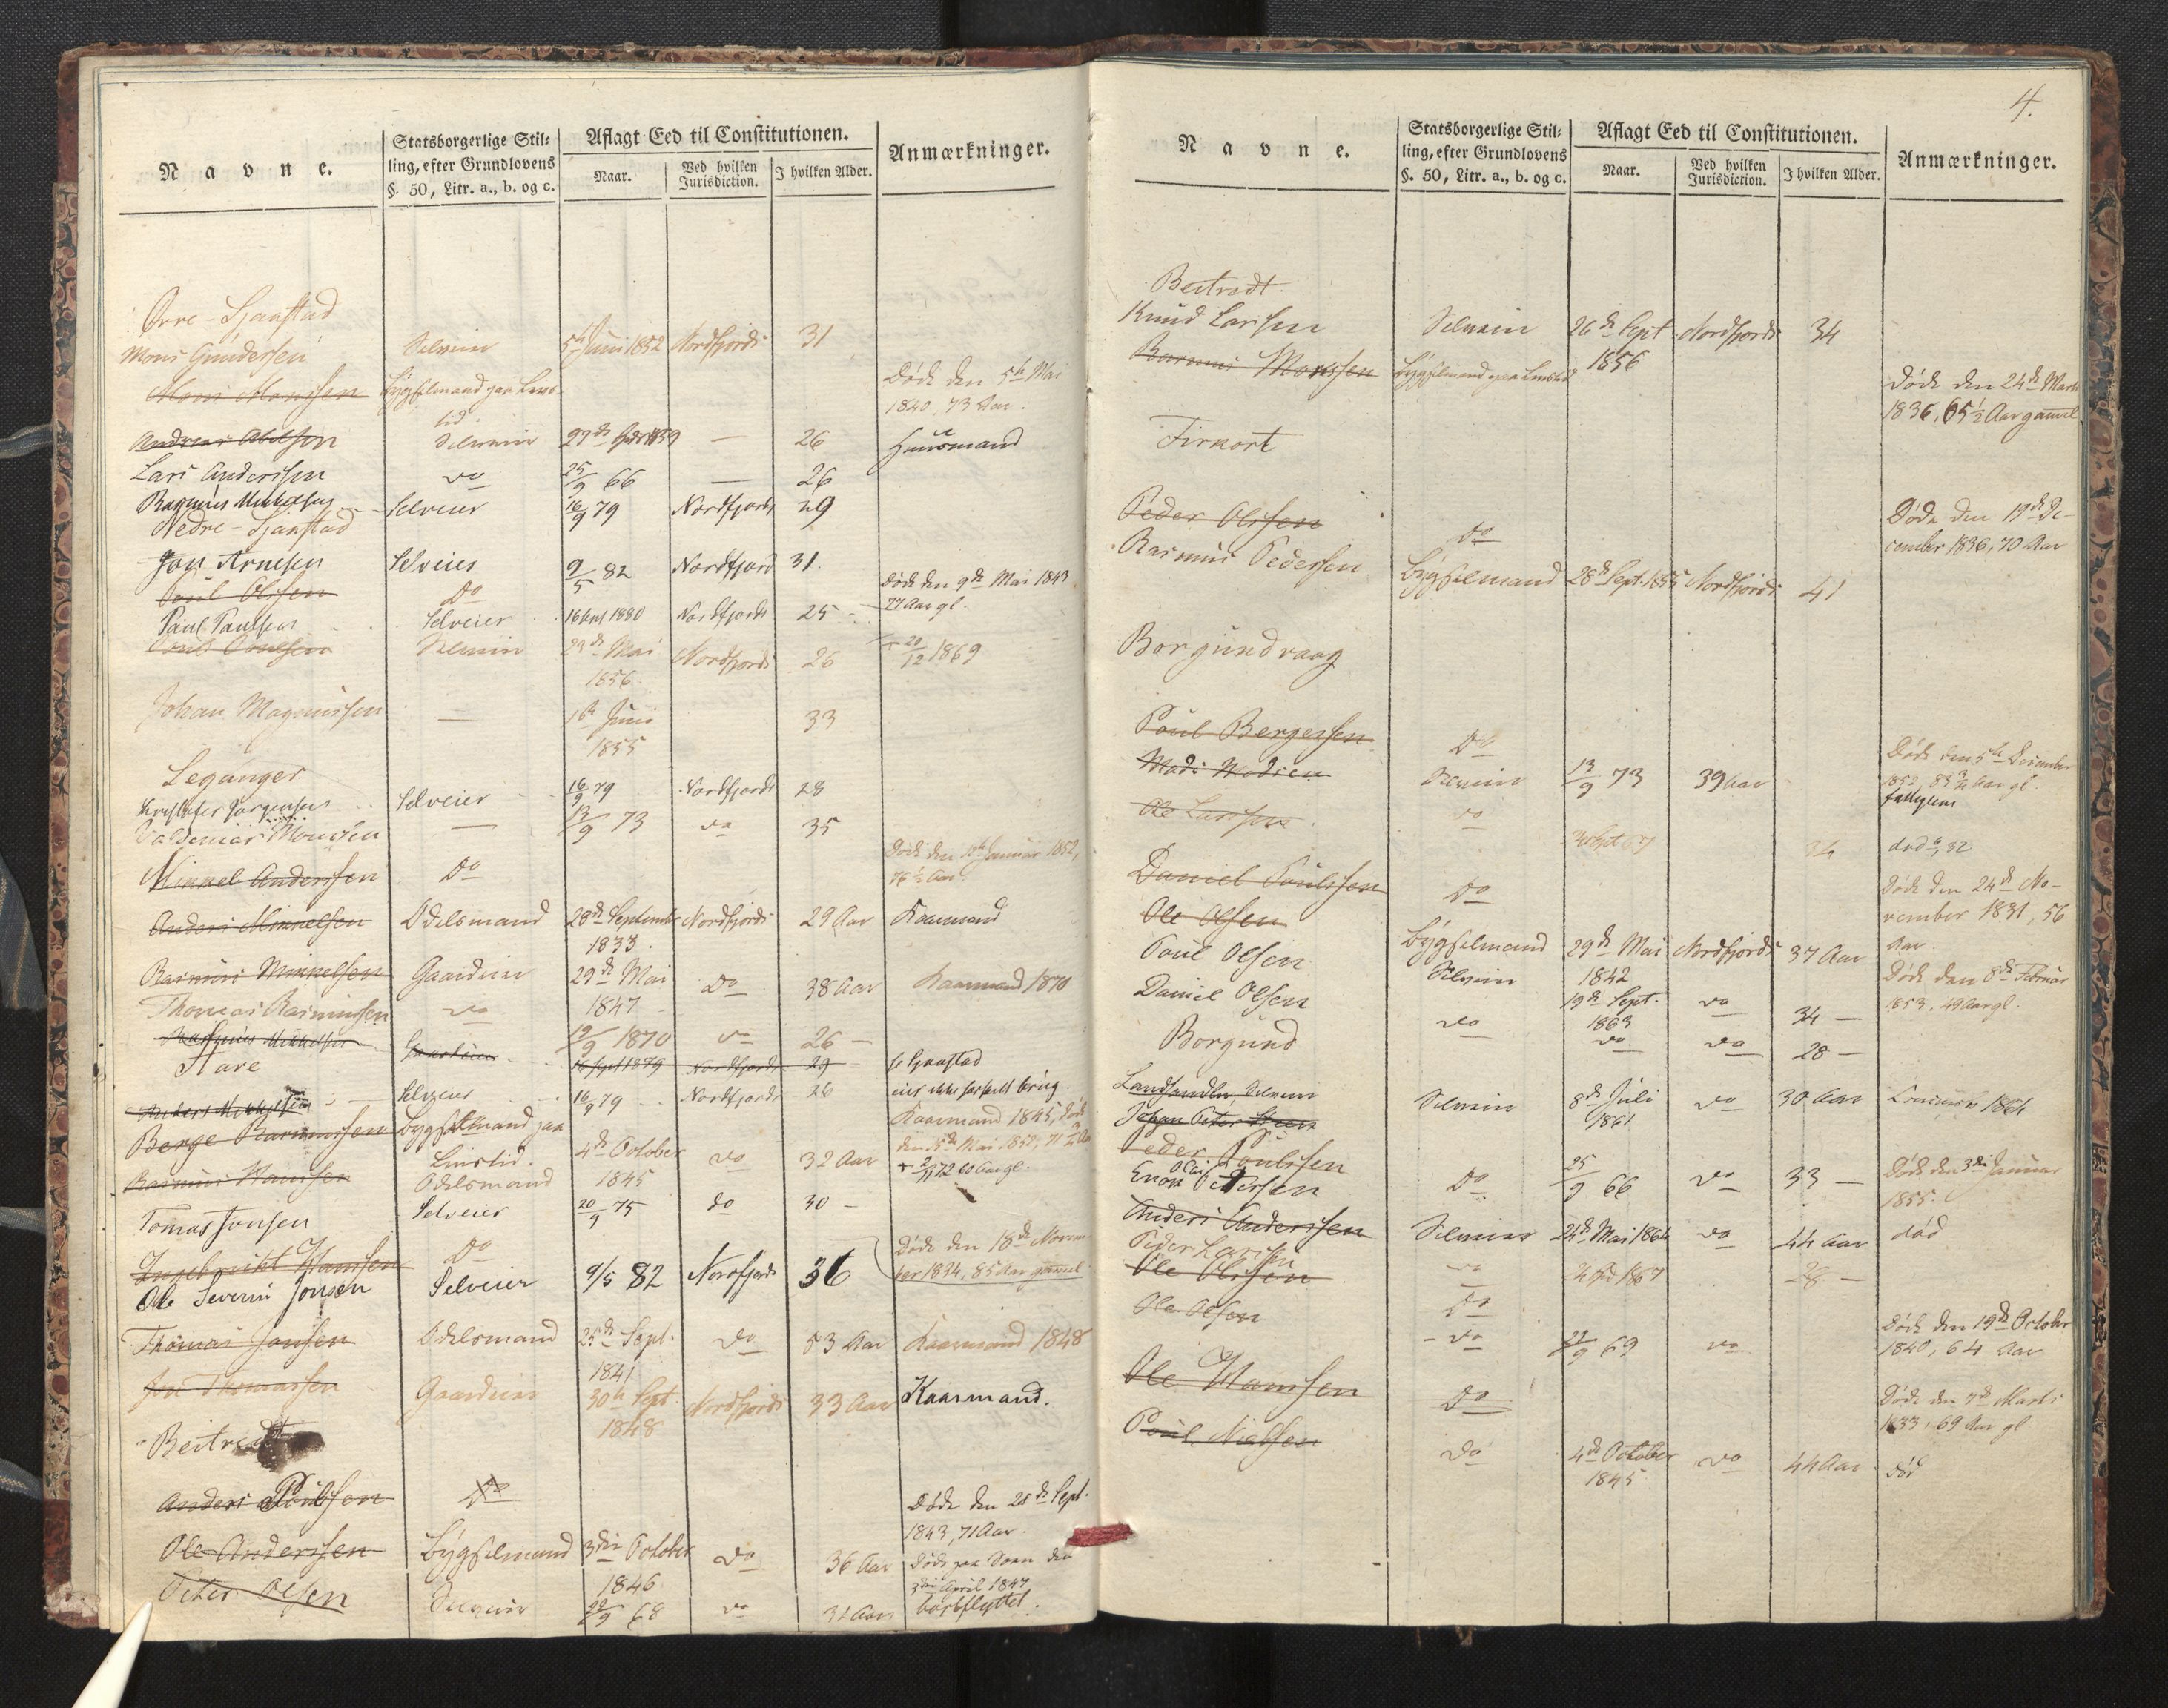 Navne.
Statsborgerlige Stil-
ling, efter Grundlovens
§. 50, Litr. a., b. og c.
Aflagt Eed til Constitutionen.
Naar.
Ved hvilken
Jurisdiction.
I hvilken Alder.
Anmærkninger.
Mons Gundersen Selveier 5te Juni 1852 Nordfjords 31
Mons Monssen Bygselmand paa Livs-
tid
Døde den 5te Mai
1840, 73 Aar.
Andreas Abelsen Selveier 26 Huusmand
Lars Anderssen do 25/9 66 — 26
Rasmus Mikkelsen Selveier 16/9 79 Nordfjords 29
Nedre-Sjaastad
Jon Arnesen Selveier 9/5 82 Nordfjord 31.
Poul Olssen Do Døde den 9de Mai 1843
77 Aar gl.
Paul Paulsen Selveier 1880 Nordfjords 25
Poul Poulsen Selveier 29de Mai
1856. Nordfjords 26 + 20/12 1869
Johan Magnussen — 1ste Juni
1855 33
Leganger
Kristofer Jørgensen Selveier 16/9 79 Nordfjords 28
Valdemar Monsen — 13/9 73 do 35
Mikkel Anderssen Do Januar 1852,
76½ Aar.
Anders Mikkelsen Odelsmand 28de September
1833. Nordfjords 29 Aar Kaarmand
Rasmus Mikkelsen Gaardeier 29de Mai
1847 Do 38 Aar Kaarmand 1870
Thomas Rasmussen do 19/9 1870 do 26 —
Rasmus Mikkelsen Gaardeier 16 Sept 1879 Nordfjords 29 se Sjaastad
Stare
Anders Mikkelsen Selveier 16/9 79 Nordfjords 26
Berge Rasmussen Bygselmand paa
Livstid. Kaarmand 1845, Døde
Rasmus Hanssen Odelsmand 4de October
1845 do 32 Aar
Tomas Jonsen Selveier 20/9 75 do 30 —
Ingebrikt Hanssen Do Døde den 18de Novem-
ber 1834, 85 Aar gammel
Ole Severin Jonsen Selveier 9/5 82 Nordfjords 36
Thomas Jonsen Odelsmand 25de Sept.
1841 Do 53 Aar Kaarmand 1848
Jon Thomassen Gaardeier 30te Sept.
1848 Nordfjords 33 Aar Kaarmand.
Anders Poulsen Do Døde den 28de Sept.
1843, 71 Aar.
Ole Anderssen Bygselmand 3die October
1846 Do 36 Aar Døde paa Søen den
3die April 1847
Peter Olsen Selveier 22/9 68 do bortflyttet.
4.
Navne.
Statsborgerlige Stil-
ling, efter Grundlovens
§. 50, Litr. a., b. og c.
Aflagt Eed til Constitutionen.
Naar.
Ved hvilken
Jurisdiction.
I hvilken Alder.
Anmærkninger.
Knud Larssen Selveier 26de Sept
1856 Nordfjords 34
Rasmus Monssen Bygselmand paa Livstid Døde den 24de Marts
1836, 65½ Aar gammel
Peder Olssen Do Døde den 17de De-
cember 1836, 70 Aar
Rasmus Pedersen Bygselmand 28de Sept. 1855 Nordfjords 41
Borgundvaag
Poul Bergersen Do Døde den 5te December
Mads Madsen Selveier 13/9 73 39 Aar
Ole Larssen do
Daniel Poulssen Do Døde den 24de No-
vember 1831, 56
Aar.
Ole Olsen Bygselmand 29de Mai
1842 Nordfjords 37 Aar Døde den 8de Februar
1853, 49 Aar gl.
Poul Olsen Selveier 19de Sept.
1863 do 34 —
Daniel Olsen do do do 28 —
Borgund
Landhandler, Selveier
Johan Peter Selveier 8de Juli
1861 do 30 Aar
Peder Poulssen Do Døde den 3die Januar
1855.
Enok Olai Pettersen 25/9 66 do 33 —
Anders Anderssen Selveier 24de Mai 1864 do 44 Aar død
Peder Larssen do 1867 28 —
Ole Olssen Do Døde den 19de October
1840, 64 Aar
Ole Olsen do 69 do
Ole Hanssen Do Døde den 7de Marts
1833, 69 Aar gl
Poul Nielssen Do 4de October
1845 do 44 Aar død